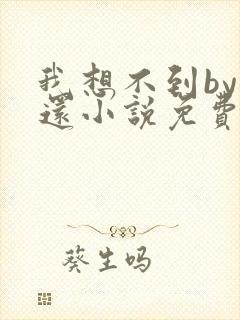 我想不到by
還小說免費
葵生吗